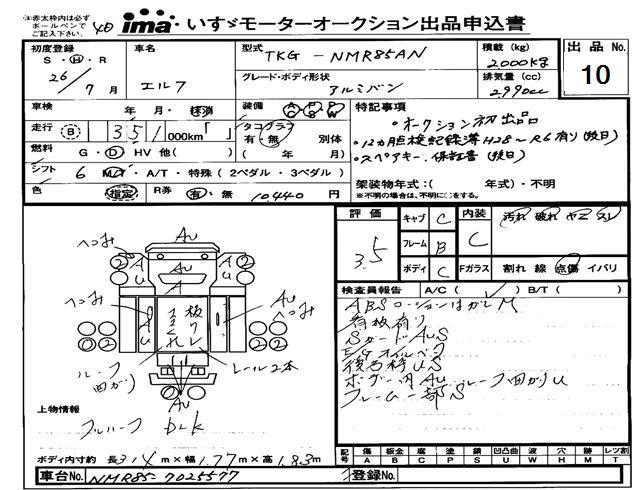 (注)赤太枠内は必ず
ボールペンで
ご記入下さい。
40
ima いすゞモーターオークション出品申込書
初度登録
S・H・R
26/7月
車名
エルフ
型式
TKG-NMR85AN
グレード・ボディ形状
アルミバン
積載(kg)
2000kg
排気量(cc)
2990cc
出品No.
10
車検 年 月・抹消
装備 AC PS PW
走行 B 351,000km「 」
タコグラフ 有・無 別体
( 年 月)
燃料 G・D HV 他( )
シフト 6 MT・A/T・特殊(2ペダル・3ペダル)
色 指定 R券 有:無 10,440円
特記事項
・オークション初出品
・12ヵ月点検記録簿H28~R6有り(後日)
・スペアキー、保証書(後日)
架装物年式:( 年式)・不明
※不明の場合は、不明に○をする。
評価
3.5
キャブ C
フレーム B
ボディ C
内装 C
汚れ 破れ ヤニ スレ
Fガラス 割れ 線 点傷 イバリ
検査員報告 A/C( ✓ )B/T( )
ABSローションはがしM
看板有り
SガードAUS
E/Gオイルベタ
後ろ枠US
ボデー内AU、ルーフ曲がりU
フレーム一部S
へこみ
AU
へこみ
AU
へこみ
板クレ
ルーフ
曲がり
レール2本
AU
上物情報
フルハーフ
ボディ内寸約 長3.14m×幅1.77m×高1.83m
記号 傷A 板金B 腐C 塗P 錆S 凹凸曲U 波W 穴H 跡M レツ割T
車台No. NMR85-7025577
登録No.